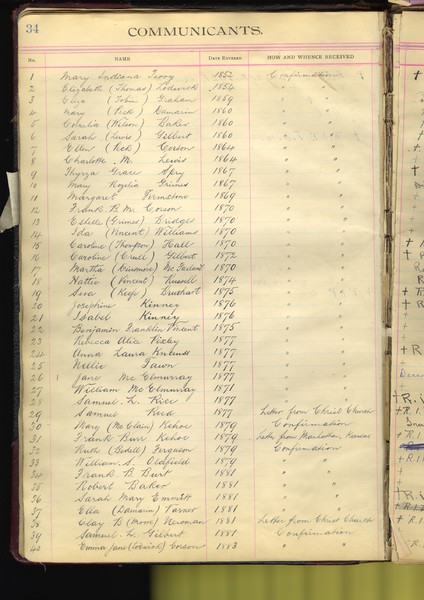 34
COMMUNICANTS.
No. NAME DATE RECEIVED HOW AND WHENCE RECEIVED
1 Mary Indiana 1852 Confirmation
2 Elizabeth (Thomas) Lodwick 1854 "
3 Eliza (Tobin) Graham 1859 "
4 Mary (Peck) Damarin 1860 "
5 Cornelia (Wilson) Baker 1860 "
6 Sarah (Lewis) Gilbert 1860 "
7 Ellen (Peck) Corson 1864 "
8 Charlotte M. Lewis 1864 "
9 Thyrza Grace Spry 1867 "
10 Mary Rogelia Grimes 1867 "
11 Margaret Firmstone 1869 "
12 Frank B. M. Corson 1870 "
13 Estelle (Grimes) Bridges 1870 "
14 Ida (Vincent) Williams 1870 "
15 Caroline (Thompson) Hall 1870 "
16 Caroline (Crull) Gilbert 1872 "
17 Martha (Dinsmore) Mc Farland 1870 "
18 Hattie (Vincent) Russell 1874 "
19 (Kepp) 1875 "
20 Josephine Kinney 1876 "
21 Isabel Kinney 1876 "
22 Benjamin Franklin Vincent 1875 "
23 Rebecca Alice Pixley 1877 "
24 Anna Laura 1877 "
25 Nellie Fawn 1877 "
26 Jane Mc Elmurray 1877 "
27 William Mc Elmurray 1871 "
28 Samuel L. Rice 1877 "
29 Samuel Reed 1877 Letter from Christ Church
30 Mary (Mc Clain) Kehoe 1879 Confirmation
31 Frank Burr Kehoe 1879 Letter from Manhattan, Kansas
32 Ruth (Bedell) Ferguson 1879 Confirmation
33 William S. Oldfield 1879 "
34 Frank B. Burt 1881 "
35 Robert Baker 1881 "
36 Sarah Mary Emmitt 1881 "
37 Ella (Damarin) Varner 1881 "
38 Clay B (Morse) Newman 1881 Letter from Christ Church
39 Samuel L. Gilbert 1881 Confirmation
40 Emma Jane (Lodwick) Corson 1883 "